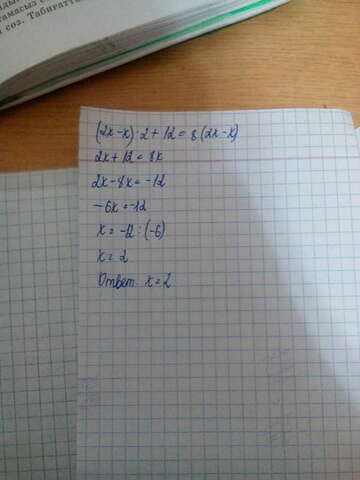 сөз. Табиғатта
(2x-x)·2+12=8(2x-x)
2x+12=8x
2x-8x=-12
-6x=-12
x=-12:(-6)
x=2
Ответ: x=2